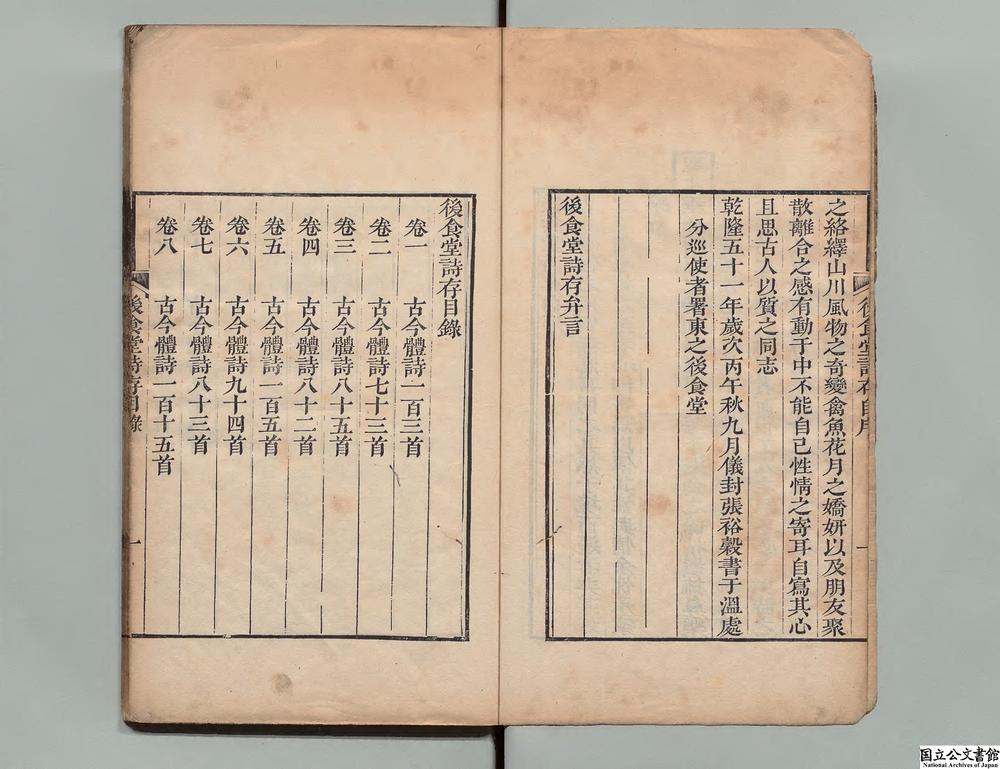 之絡繹山川風物之奇變禽魚花月之嬌妍以及朋友聚
散離合之感有動于中不能自己性情之寄耳自寫其心
且思古人以質之同志
乾隆五十一年歲次丙午秋九月儀封張裕穀書于溫處
分巡使者署東之後食堂
後食堂詩存弁言
後食堂詩存目錄
卷一 古今體詩一百三首
卷二 古今體詩七十三首
卷三 古今體詩八十五首
卷四 古今體詩八十二首
卷五 古今體詩一百五首
卷六 古今體詩九十四首
卷七 古今體詩八十三首
卷八 古今體詩一百十五首
後食堂詩存目錄 一
国立公文書館
National Archives of Japan